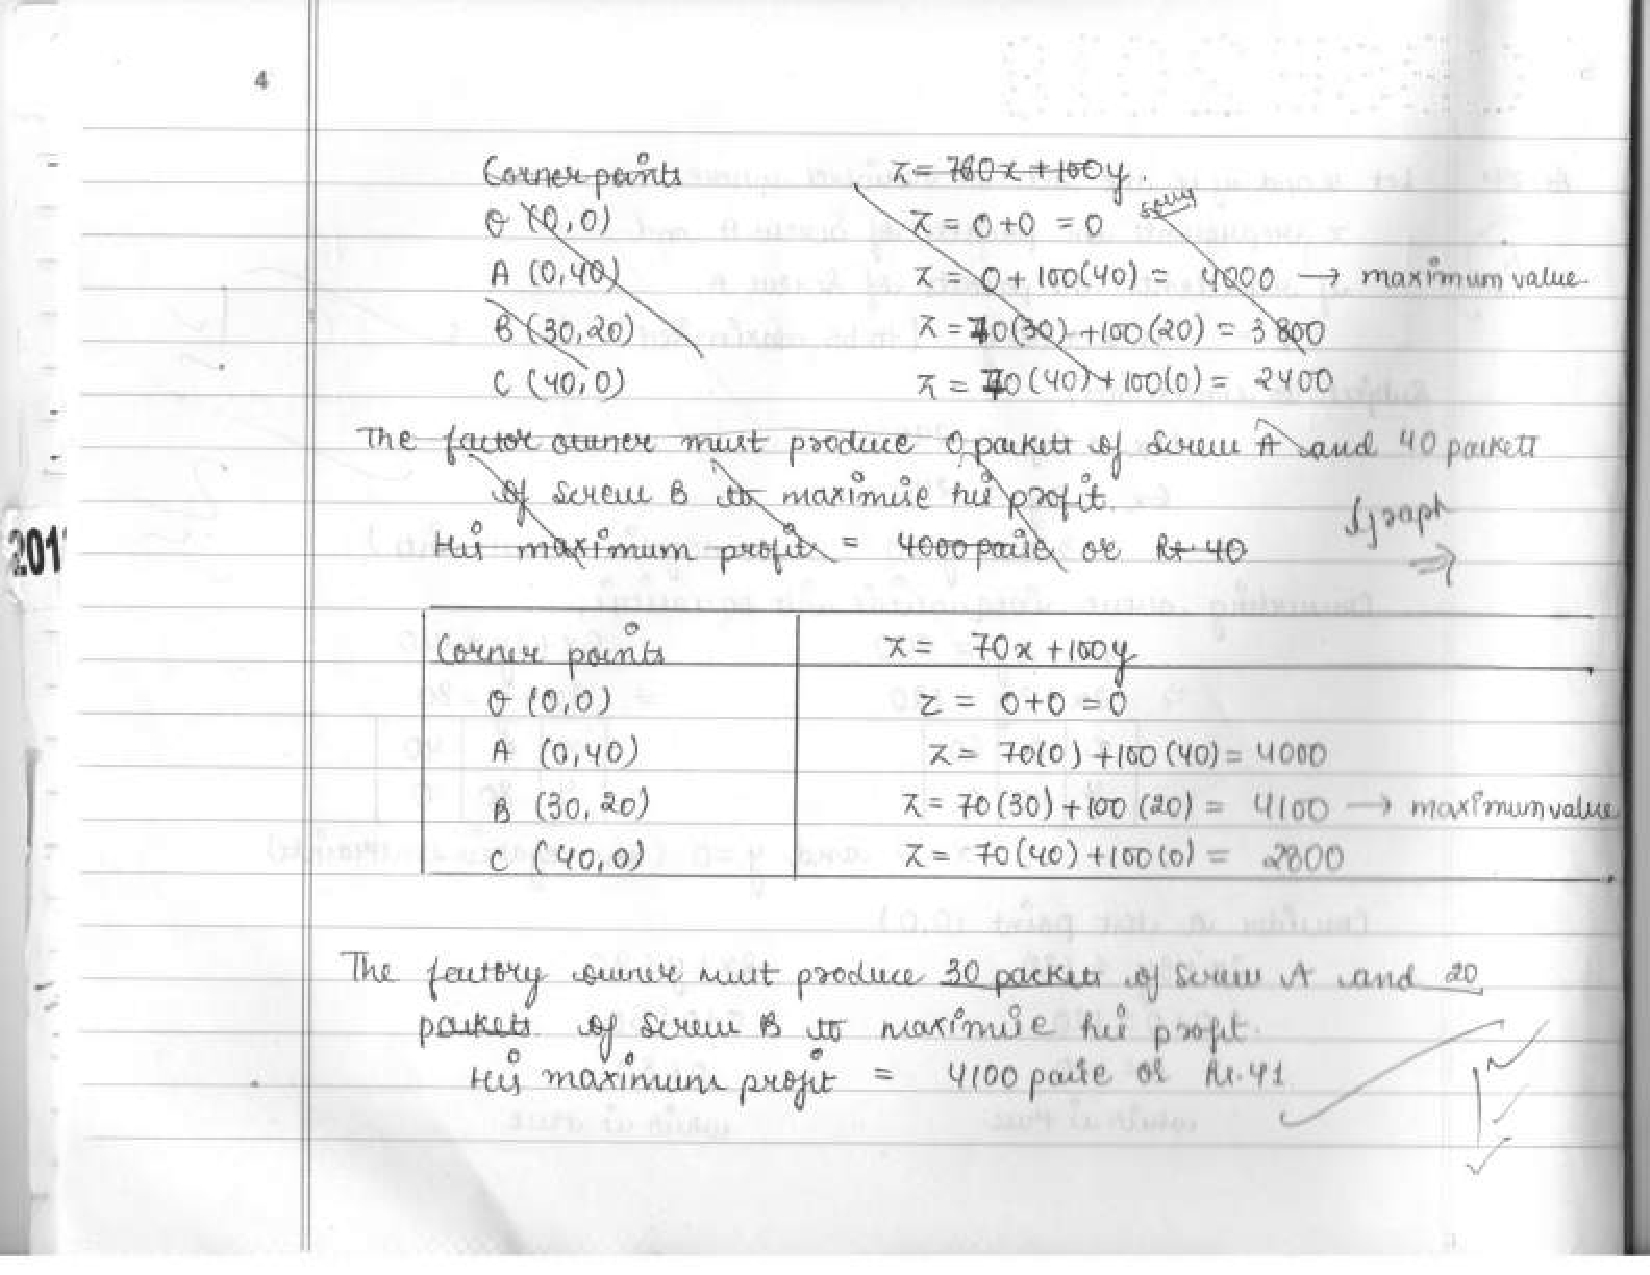 4
Corner points z = 70x + 100y.
O (0,0) z = 0+0 = 0
A (0,40) z = 0 + 100(40) = 4000 → maximum value
B (30,20) z = 70(30) + 100(20) = 3800
C (40,0) z = 70(40) + 100(0) = 2400
The factor owner must produce 0 packets of screw A and 40 packets
of screw B to maximise his profit.
His maximum profit = 4000 paise or Rs 40
graph
⇒
201
Corner points z = 70x + 100y
O (0,0) z = 0+0 = 0
A (0,40) z = 70(0) + 100(40) = 4000
B (30,20) z = 70(30) + 100(20) = 4100 → maximum value
C (40,0) z = 70(40) + 100(0) = 2800
The factory owner must produce 30 packets of screw A and 20
packets of screw B to maximise his profit.
His maximum profit = 4100 paise or Rs. 41